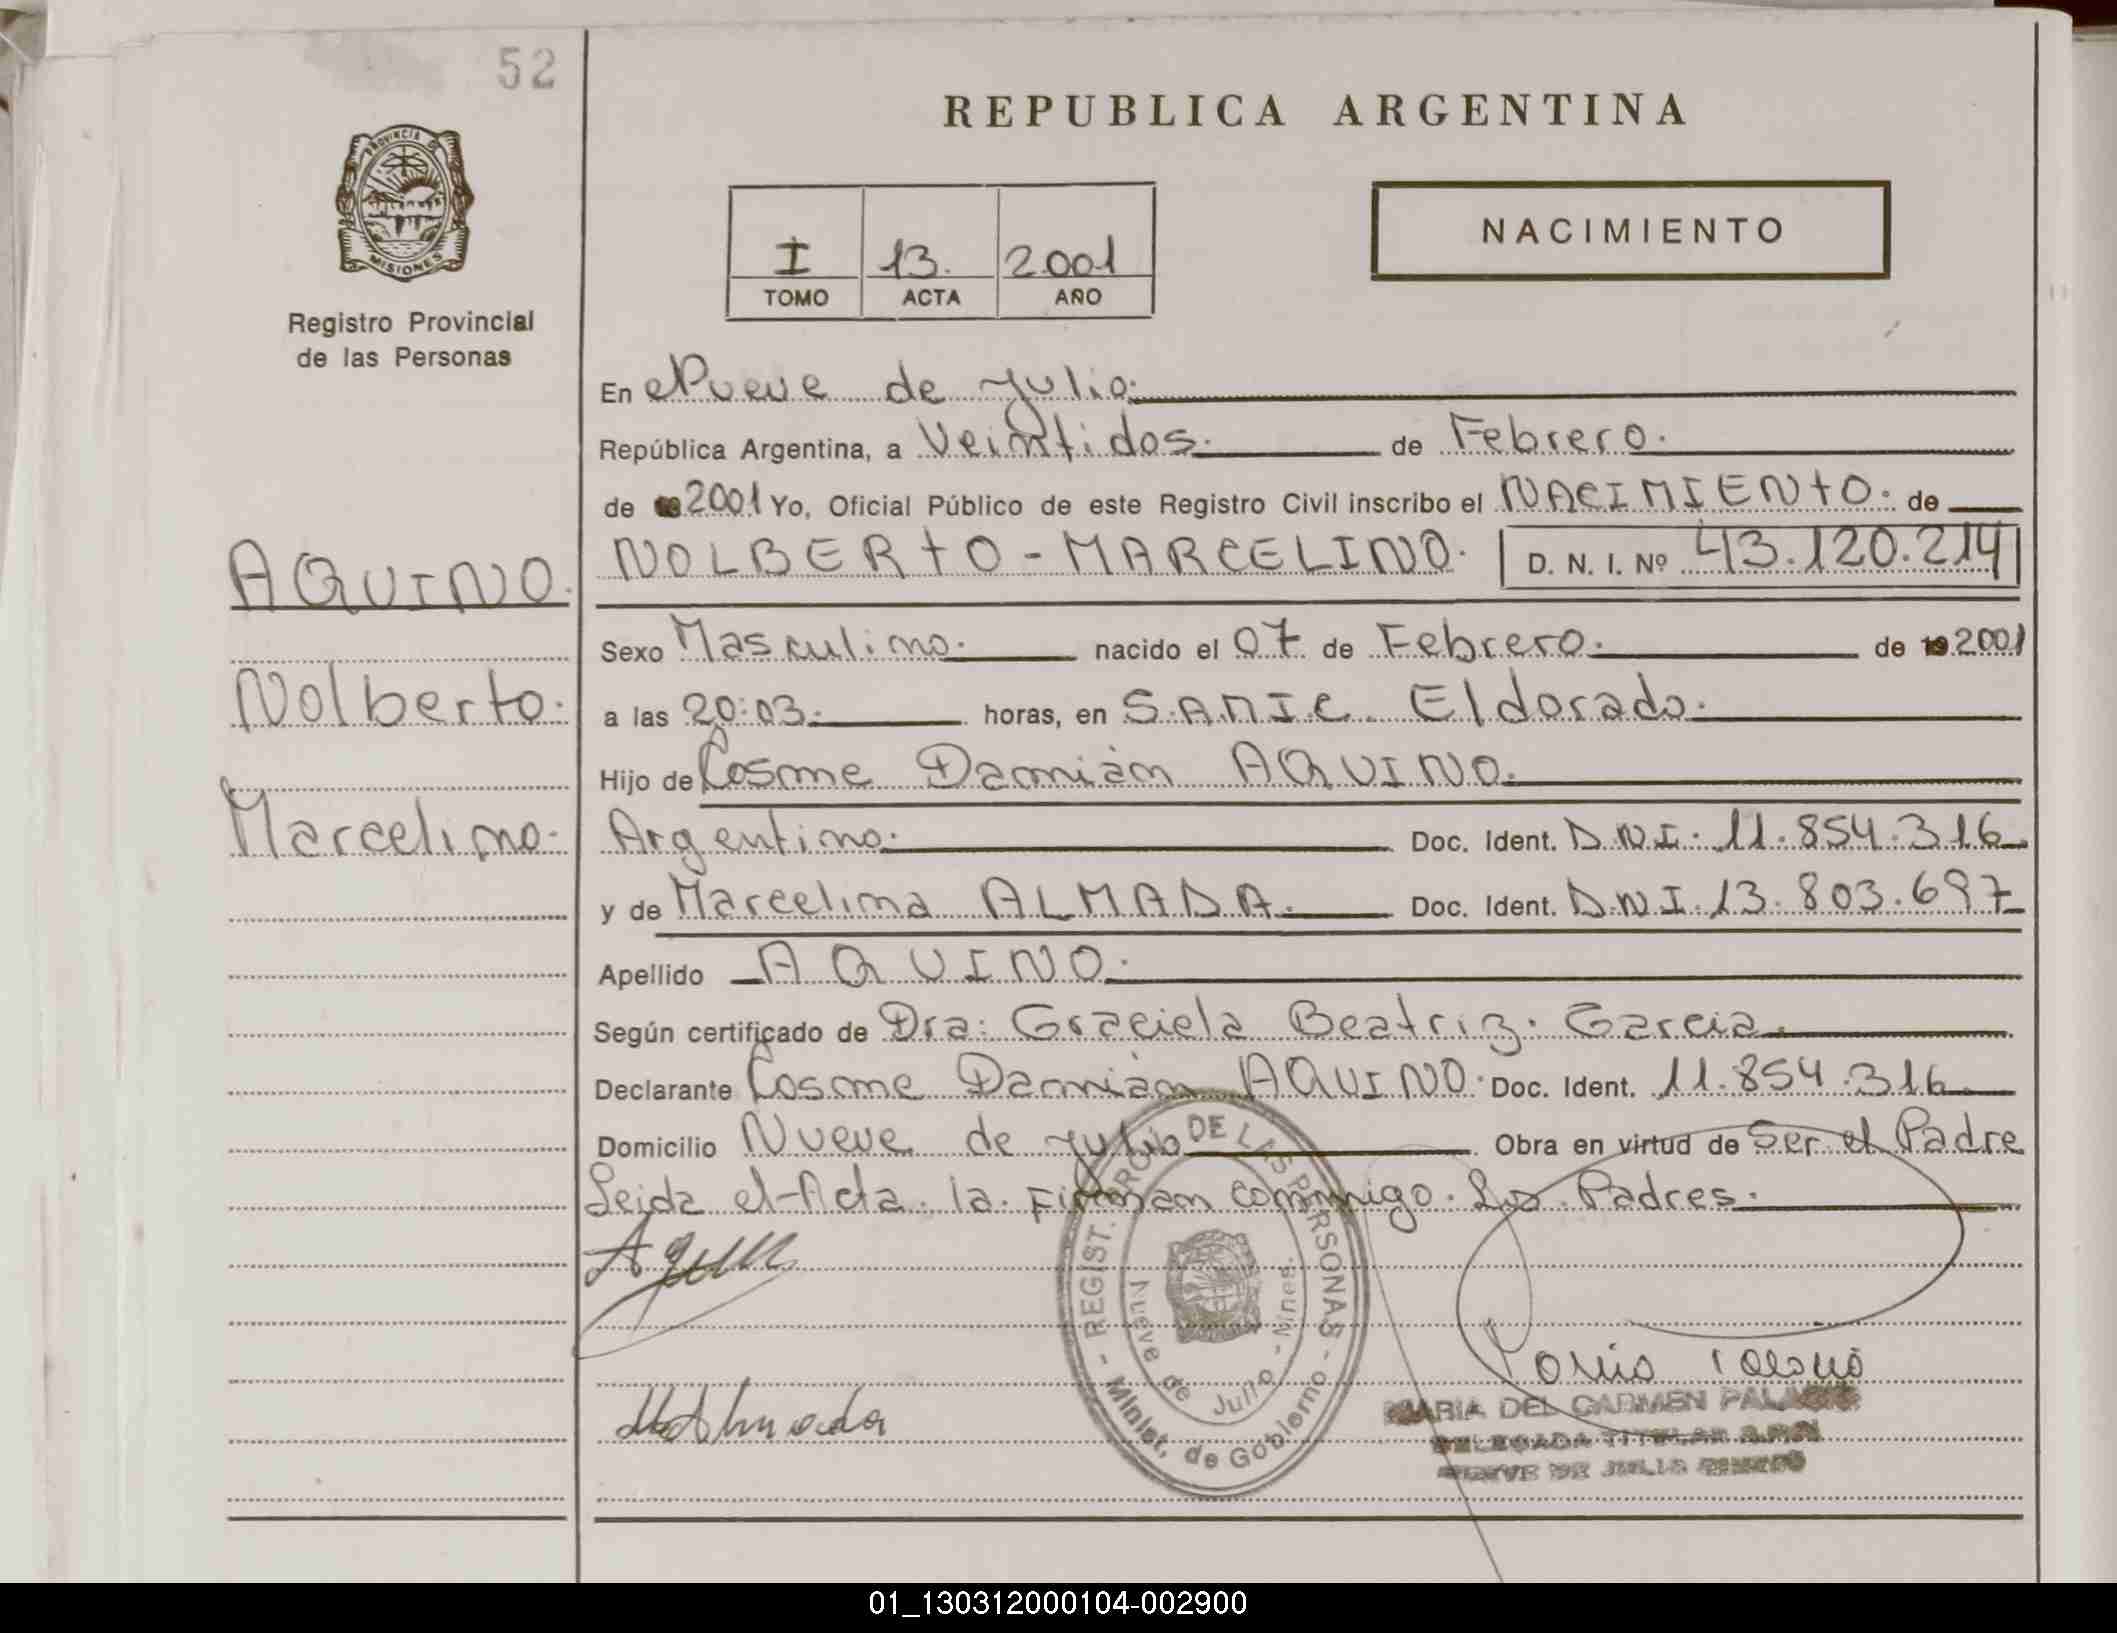 52
PROVINCIA DE
MISIONES
Registro Provincial
de las Personas
REPUBLICA ARGENTINA
I 13. 2001
TOMO ACTA AÑO
NACIMIENTO
En Nueve de Julio.
República Argentina, a Veintidos. de Febrero.
de 2001 Yo, Oficial Público de este Registro Civil inscribo el NACIMIENTO. de
AQUINO.
NOLBERTO - MARCELINO. D. N. I. Nº 43.120.214
Sexo Masculino. nacido el 07 de Febrero. de 2001
Nolberto.
a las 20:03. horas, en S.A.M.I.C. Eldorado.
Hijo de Cosme Damián AQUINO.
Marcelino.
Argentino. Doc. Ident. D.N.I. 11.854.316
y de Marcelina ALMADA. Doc. Ident. D.N.I. 13.803.697
Apellido AQUINO.
Según certificado de Dra: Graciela Beatriz. Garcia.
Declarante Cosme Damián AQUINO. Doc. Ident. 11.854.316
Domicilio Nueve de Julio Obra en virtud de Ser el Padre
Leida el Acta. la. Firman conmigo. Los. Padres.
REGIST. PROV. DE LAS PERSONAS - Minist, de Gobierno -
Nueve de Julio - Mnes.
MAlmada
MARIA DEL CARMEN PALACIO
DELEGADA TITULAR
NUEVE DE JULIO
01_130312000104-002900